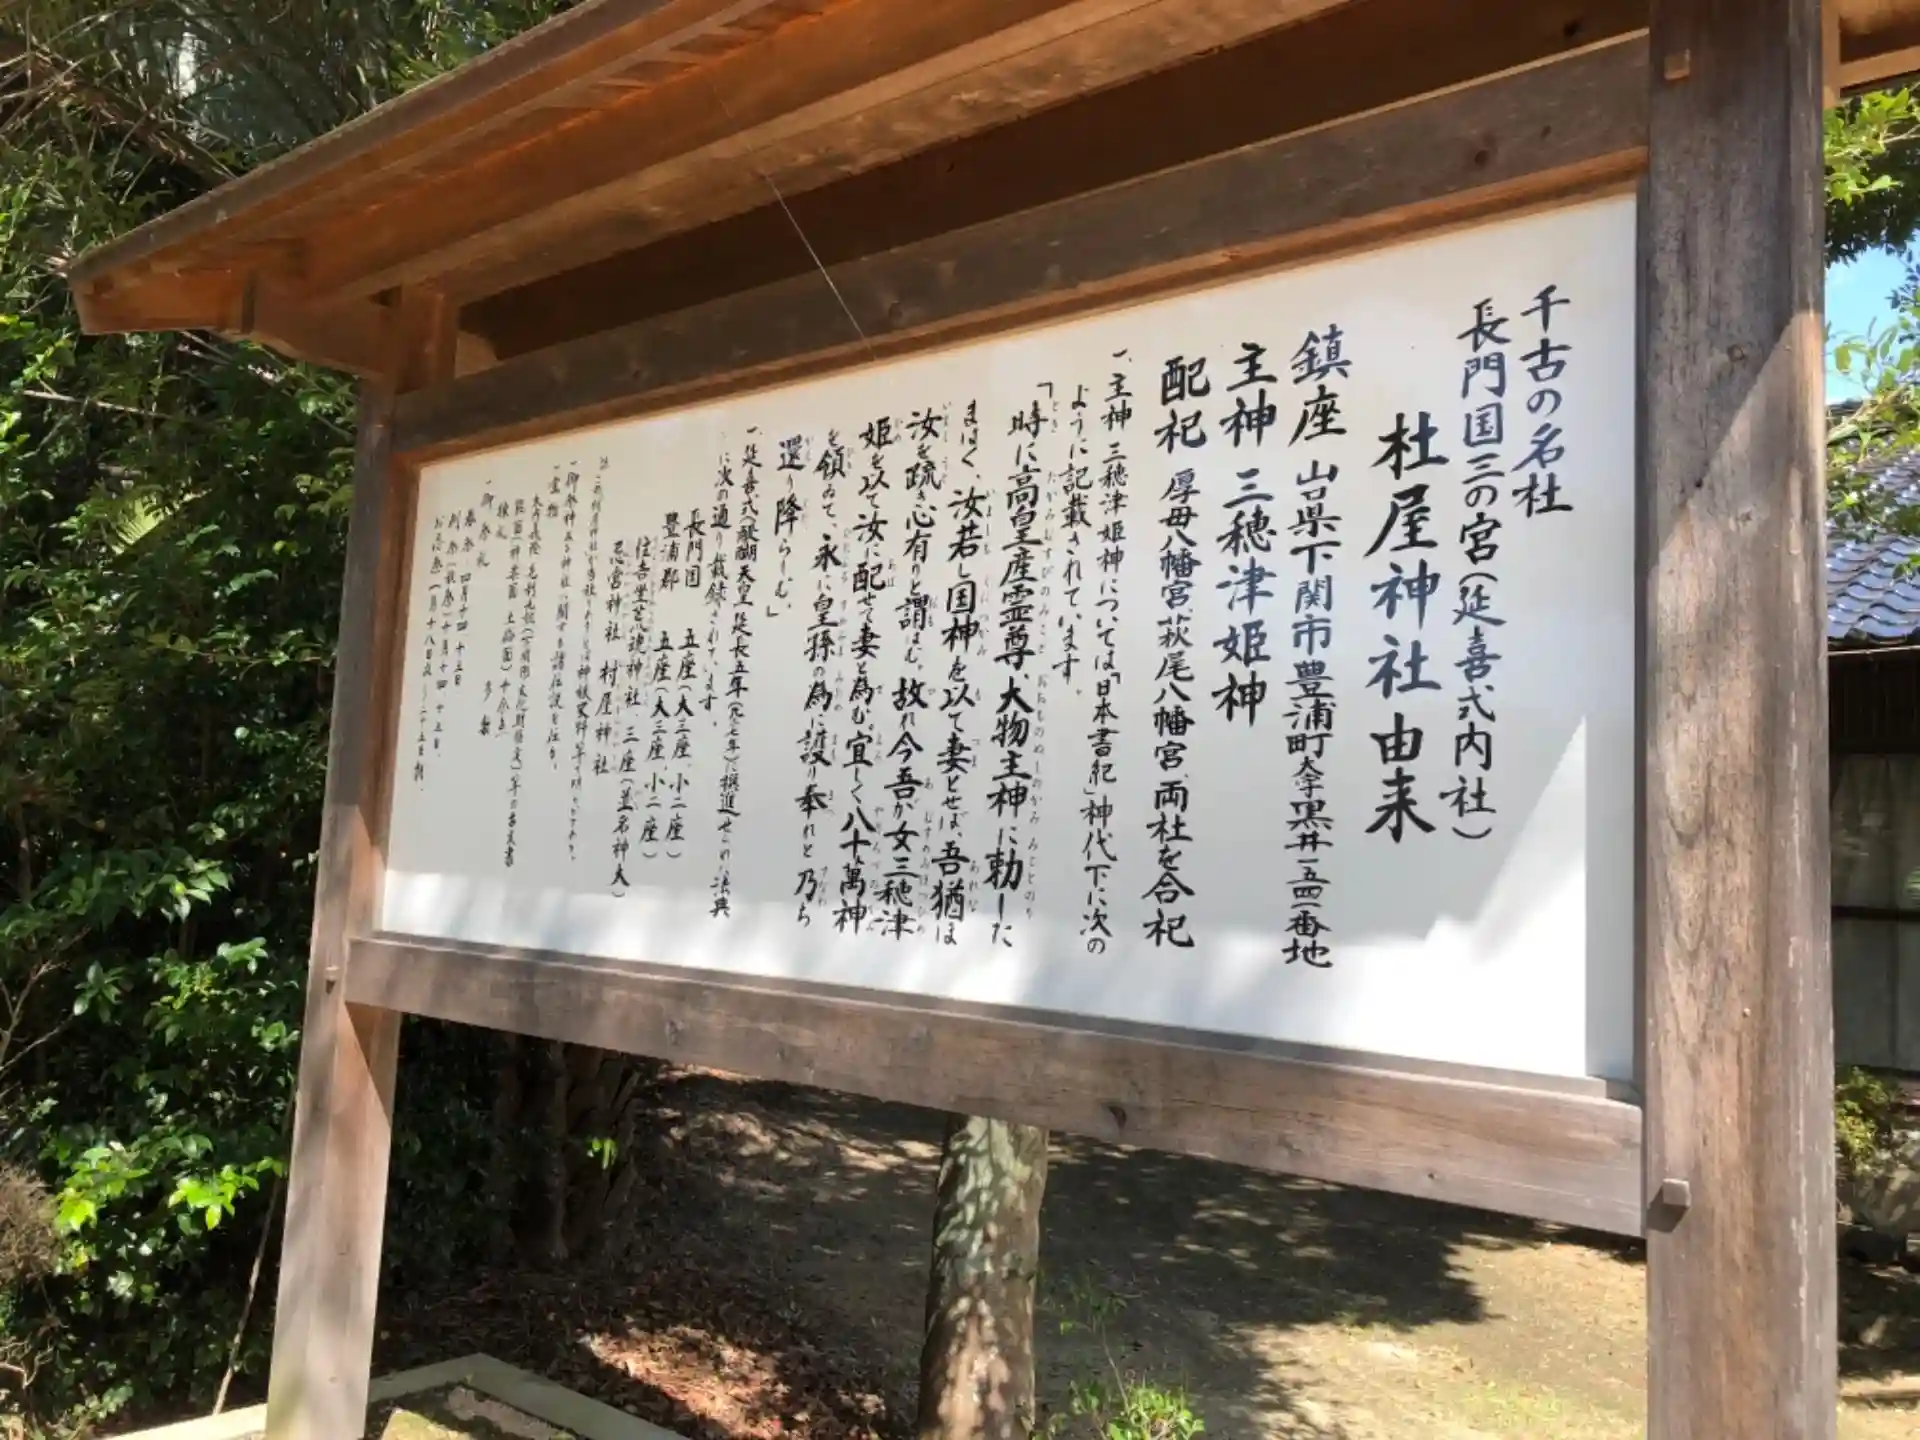 千古の名社
長門国三の宮(延喜式内社)
杜屋神社由来
鎮座 山口県下関市豊浦町大字黒井一五四一番地
主神 三穂津姫神
配祀 厚母八幡宮、萩尾八幡宮、両社を合祀
一、主神 三穂津姫神については「日本書紀」神代下に次の
ように記載されています。
「時に高皇産霊尊、大物主神に勅した
まはく、汝若し国神を以て妻とせば、吾猶ほ
汝を疏き心有りと謂はむ。故れ今吾が女三穂津
姫を以て汝に配せて妻と為む宜しく八十萬神
を領ゐて、永に皇孫の為に護り奉れと乃ち
還り降らしむ。」
一、延喜式(醍醐天皇延長五年(九二七年)に撰進せられ法典
に次の通り載録されています。
長門国 五座(大三座、小二座)
豊浦郡 五座(大三座、小二座)
住吉坐荒魂神社、三座(並名神大)
忌宮神社 村屋神社
一、御祭礼
春祭 四月十四 十五日
例祭(秋祭)十月十四 十五日、